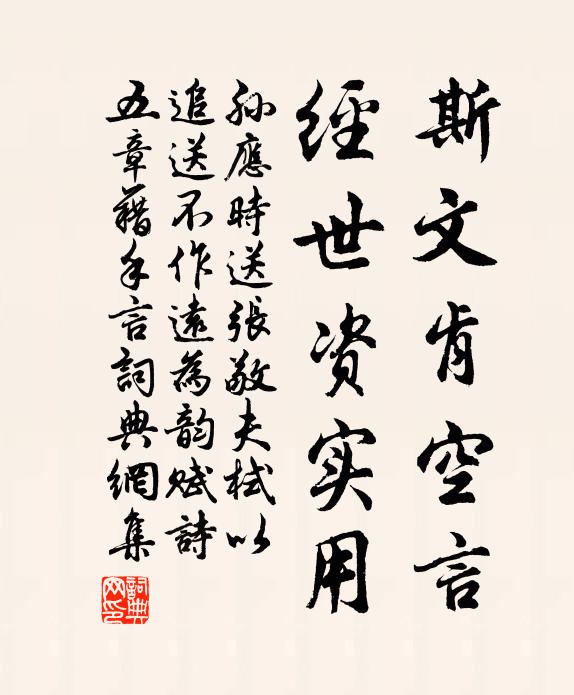 斯文肯空言
經世资实用
孙應時送張敬夫栻以
追送不作遠為韵赋詩
五章藉手言詞典網集
詞典网印